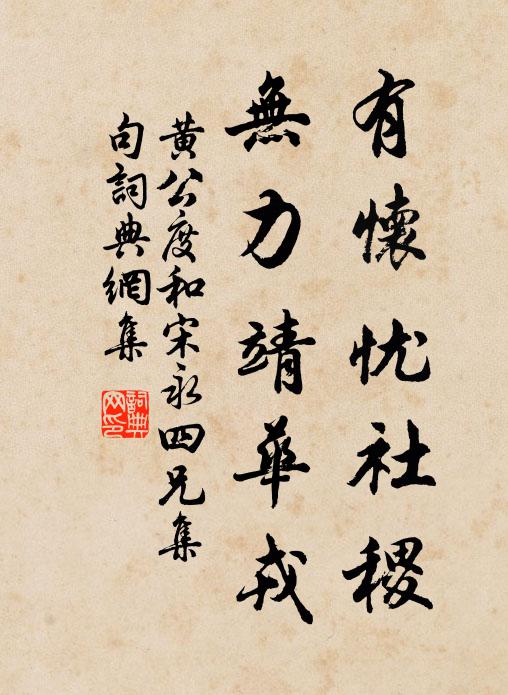 有懷忧社稷
無力靖華戎
黄公度和宋永四兄集
句詞典網集
詞典
网印